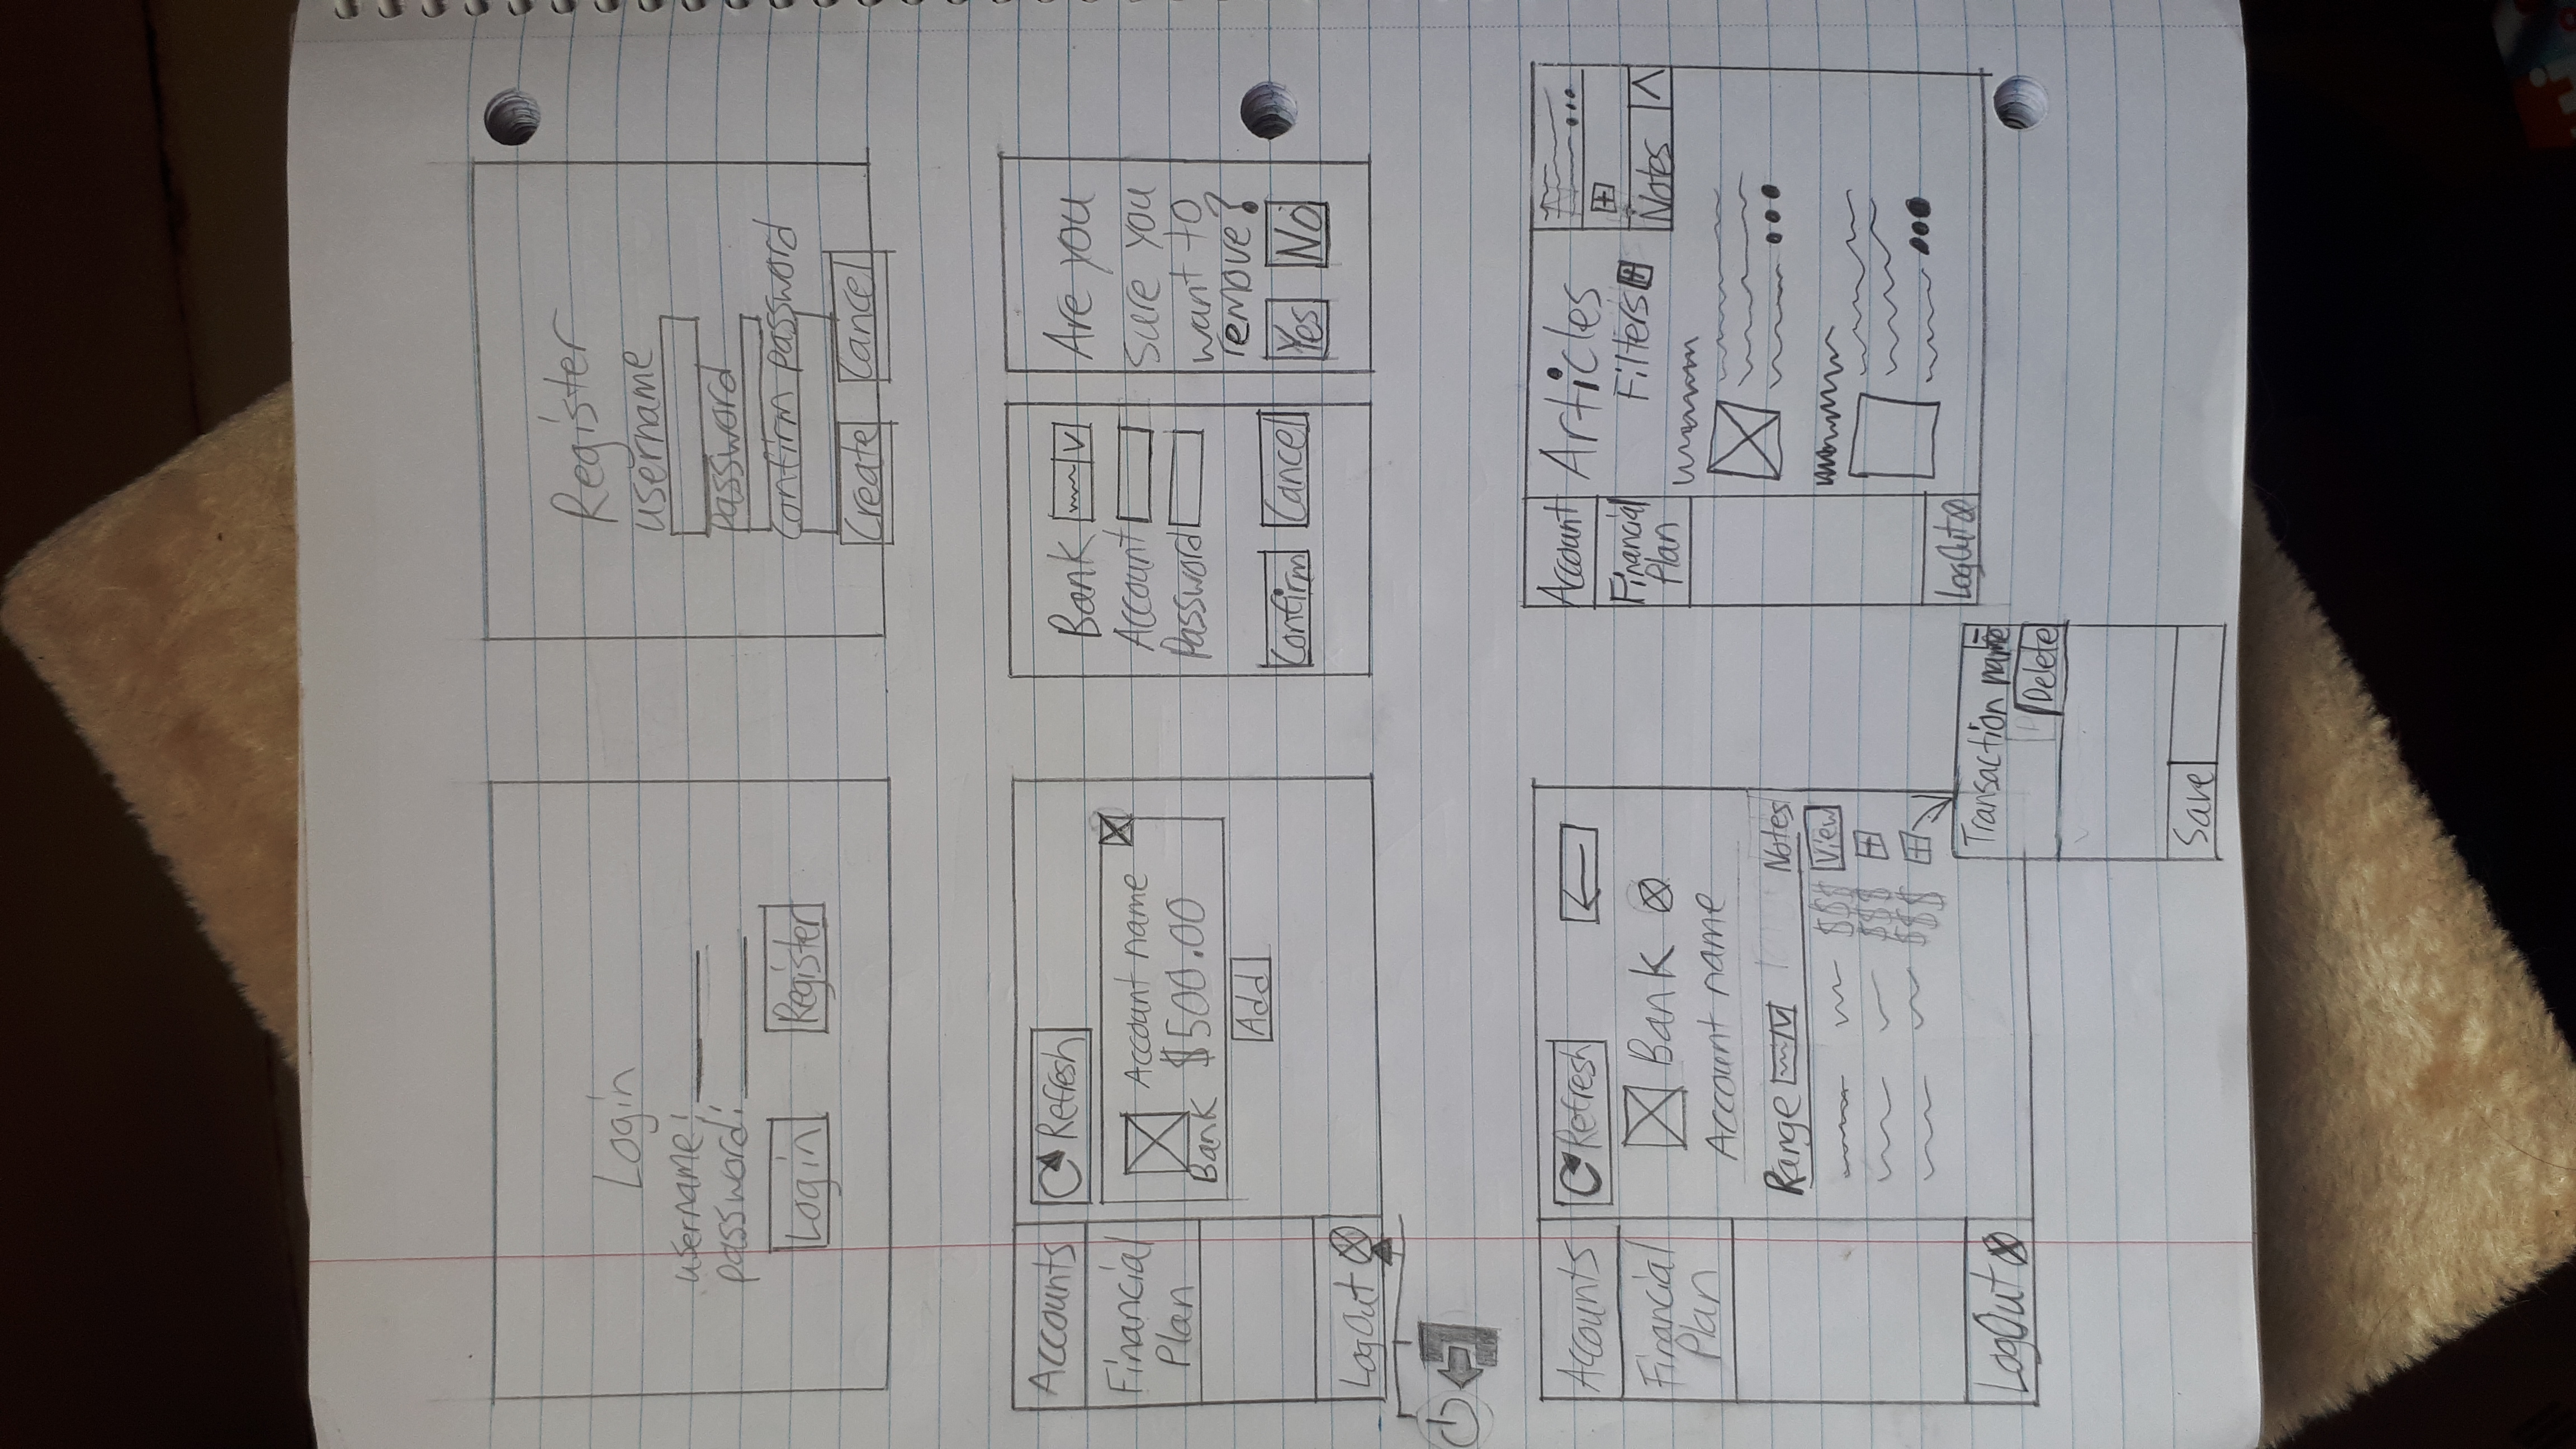 Login
username:
password:
Login Register
Register
username
password
Confirm password
Create Cancel
Accounts
Financial
Plan
LogOut
Refresh
Account name
$500.00
Bank
Add
Bank
Account
Password
Confirm Cancel
Are you
sure you
want to
remove?
Yes No
Accounts
Financial
Plan
LogOut
Refresh
Bank
Account name
Range Notes
$$$ View
$$$
$$$
Transaction name
Delete
Save
Account
Financial
Plan
LogOut
Articles
Filters
Notes